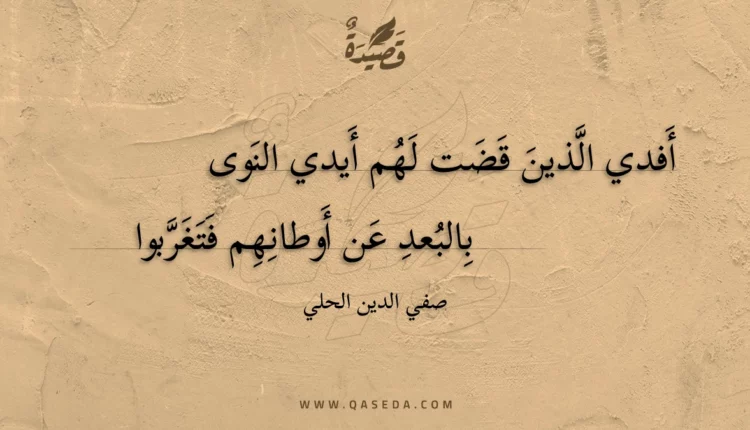 قَصِيدَةٌ
أَفدي الَّذينَ قَضَت لَهُم أَيدي النَوى
بِالبُعدِ عَن أَوطانِهِم فَتَغَرَّبوا
صفي الدين الحلي
WWW.QASEDA.COM